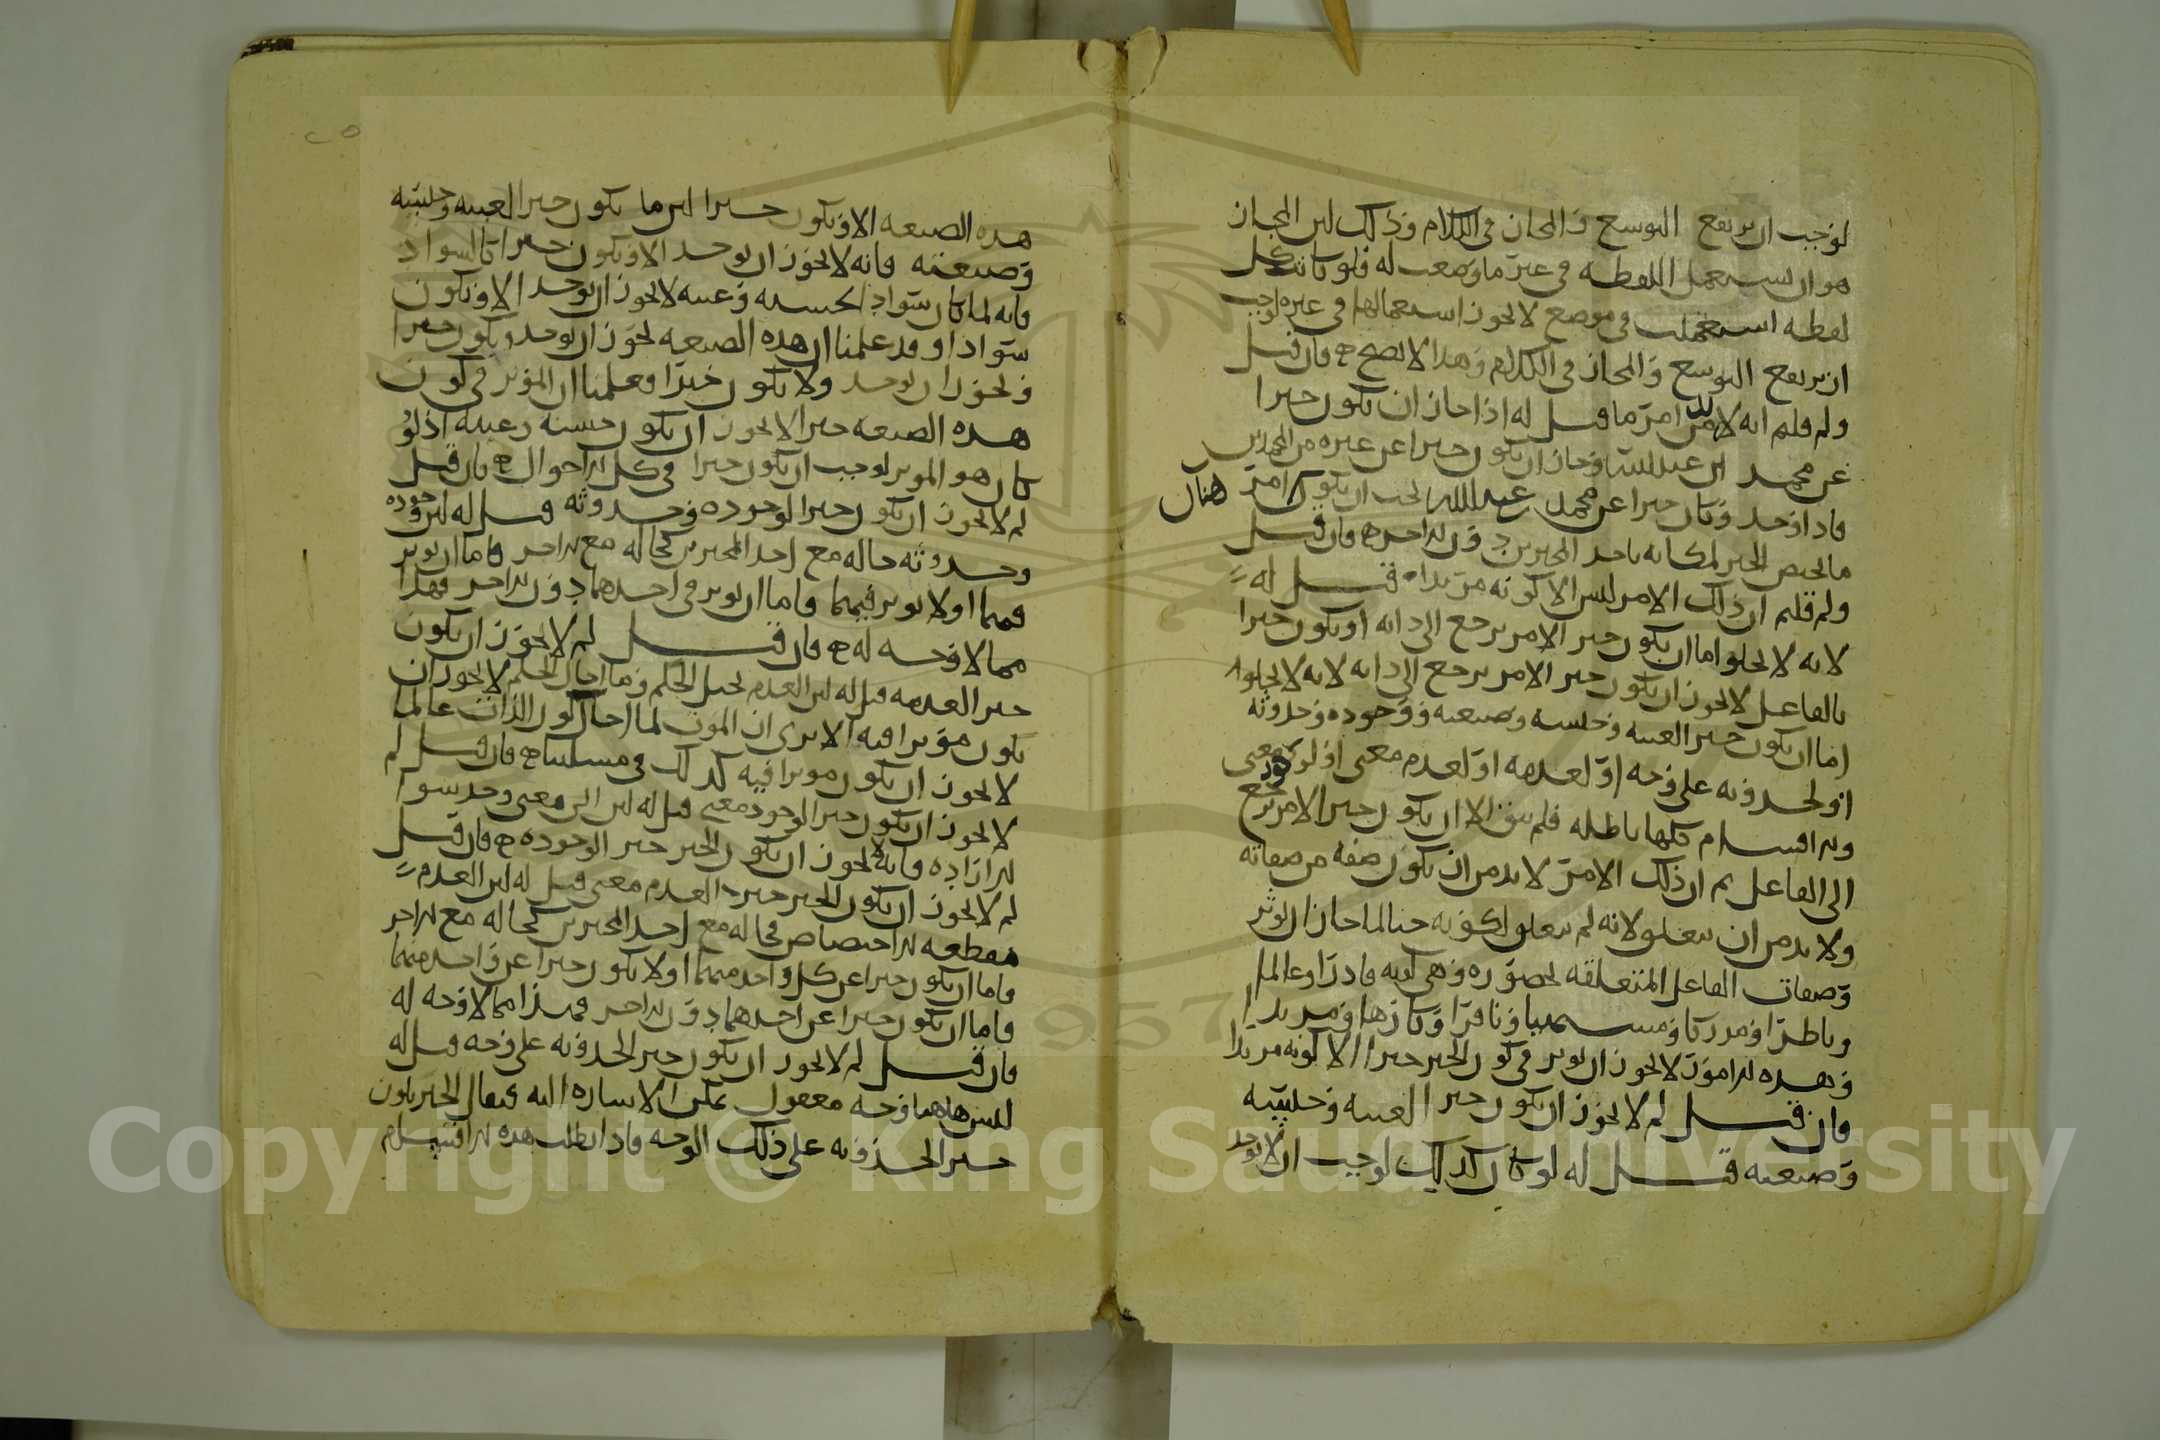 لوجب ان يرتفع التوسع والمجاز في الكلام وذلك لان المجاز
هو ان يستعمل اللفظه في غير ما وضعت له فلو كانت كل
لفظه استعملت في موضع لا يجوز استعمالها في غيره لوجب
ان يرتفع التوسع والمجاز في الكلام وهذا لا يصح فان قيل
ولم قلتم انه لابد من امر ما قيل له اذا جاز ان يكون خبرا
عن محمد ابن عبدالله وجاز ان يكون خبرا عن غيره من المحمدين
فاذا وجد وكان خبرا عن محمد بن عبدالله يجب ان يكون هناك امر
ما يختص الخبر لمكانه باحد المخبرين دون الاخر فان قيل
ولم قلتم ان ذلك الامر ليس الا كونه مريدا قيل له
لانه لا يخلو اما ان يكون خبر الامر يرجع الى ذاته او يكون خبرا
بالفاعل لا يجوز ان يكون خبر الامر يرجع الى ذاته لانه لا يخلو
اما ان يكون خبر العينه وجنسه وصيغته ووجوده وحدوثه
او لحدوثه على وجه او لعدمه او لعدم معنى او لوجود معنى
والاقسام كلها باطله فلم يبق الا ان يكون خبر الامر يرجع
الى الفاعل ثم ان ذلك الامر لا بد من ان يكون صفه من صفاته
ولا بد من ان يتعلق لانه لم يتعلق لكونه حيا لما جاز ان يوثر
وصفات الفاعل المتعلقه محصوره وهي كونه قادرا وعالما
وناظرا ومدركا ومشتهيا ونافرا وكارها ومريدا
وهذه الامور لا يجوز ان يوثر في كون الخبر خبرا الا كونه مريدا
فان قيل لم لا يجوز ان يكون خبر العينه وجنسه
وصيغته قيل له لو كان كذلك لوجب ان لا يوجد
هذه الصيغه الا ويكون خبرا لان ما يكون خبر العينه وجنسه
وصيغته فانه لا يجوز ان يوجد الا ويكون خبرا كالسواد
فانه لما كان سوادا لجنسه وعينه لا يجوز ان يوجد الا ويكون
سوادا وقد علمنا ان هذه الصيغه يجوز ان يوجد ويكون خبرا
ويجوز ان يوجد ولا يكون خبرا فعلمنا ان الموثر في كون
هذه الصيغه خبرا لا يجوز ان يكون جنسه وعينه اذ لو
كان هو الموثر لوجب ان يكون خبرا في كل الاحوال فان قيل
لم لا يجوز ان يكون خبرا لوجوده وحدوثه قيل له لان وجوده
وحدوثه حاله مع احد المخبرين كحاله مع الاخر فاما ان يوثر
فيهما او لا يوثر فيهما واما ان يوثر في احدهما دون الاخر فهذا
مما لا وجه له فان قيل لم لا يجوز ان يكون
خبر العدمه قيل له لان العدم يحيل الحكم وما احال الحكم لا يجوز ان
يكون موثرا فيه الا يرى ان الموت لما احال كون الذات عالما
لا يجوز ان يكون موثرا فيه كذلك في مسلتنا فان قيل لم
لا يجوز ان يكون خبر الوجود معنى قيل له لان اي معنى وجد سوى
الاراده فانه لا يجوز ان يكون الخبر خبر الوجوده فان قيل
لم لا يجوز ان يكون الخبر خبرا لعدم معنى قيل له لان العدم
مقطعه الاختصاص فحاله مع احد المخبرين كحاله مع الاخر
فاما ان يكون خبرا عن كل واحد منهما او لا يكون خبرا عن واحد منهما
فاما ان يكون خبرا عن احدهما دون الاخر فهذا مما لا وجه له
فان قيل لم لا يجوز ان يكون خبر الحدوثه على وجه قيل له
ليس هاهنا وجه معقول يمكن الاشاره اليه فيقال الخبر يكون
خبر الحدوثه على ذلك الوجه فاذا بطلت هذه الاقسام